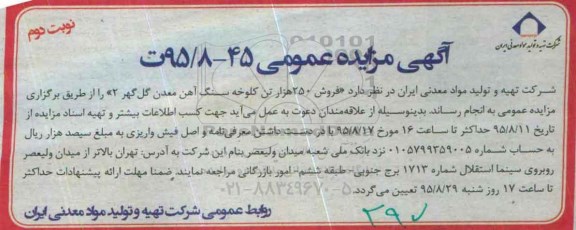 نوبت دوم
شرکت تهیه و تولید مواد معدنی ایران
آگهی مزایده عمومی ۴۵-۹۵/۸ت
شرکت تهیه و تولید مواد معدنی ایران در نظر دارد «فروش ۲۵۰هزار تن کلوخه سنگ آهن معدن گل گهر ۲» را از طریق برگزاری
مزایده عمومی به انجام رساند. بدینوسیله از علاقه‌مندان دعوت به عمل می‌آید جهت کسب اطلاعات بیشتر و تهیه اسناد مزایده از
تاریخ ۹۵/۸/۱۱ حداکثر تا ساعت ۱۶ مورخ ۹۵/۸/۱۷ با در دست داشتن معرفی‌نامه و اصل فیش واریزی به مبلغ سیصد هزار ریال
به حساب شماره ۰۱۰۵۷۹۹۳۵۹۰۰۵ نزد بانک ملی شعبه میدان ولیعصر بنام این شرکت به آدرس: تهران بالاتر از میدان ولیعصر
روبروی سینما استقلال شماره ۱۷۱۳ برج جنوبی- طبقه ششم- امور بازرگانی مراجعه نمایند. ضمنا مهلت ارائه پیشنهادات حداکثر
تا ساعت ۱۷ روز شنبه ۹۵/۸/۲۹ تعیین می‌گردد.
۰۲۱-۸۸۳۴۹۶۷۰-۵
روابط عمومی شرکت تهیه و تولید مواد معدنی ایران